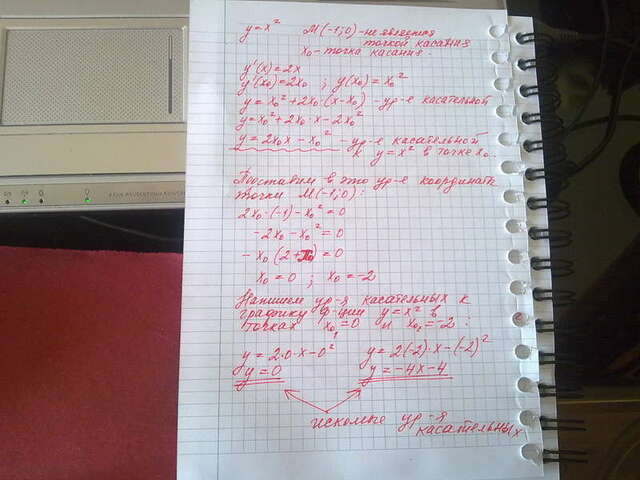 y=x² M(-1;0)-не является
точкой касания
x₀-точка касания.
y'(x)=2x
y'(x₀)=2x₀ ; y(x₀)=x₀²
y=x₀²+2x₀·(x-x₀) -ур-е касательной
y=x₀²+2x₀·x-2x₀²
y=2x₀x-x₀² -ур-е касательной
к y=x² в точке x₀.
Подставим в это ур-е координаты
точки M(-1;0):
2x₀·(-1)-x₀²=0
-2x₀-x₀²=0
-x₀(2+x₀)=0
x₀=0 ; x₀=-2
Напишем ур-я касательных к
графику ф-ции y=x² в
точках x₀₁=0 и x₀₂=-2:
y=2·0·x-0² y=2(-2)·x-(-2)²
y=0 y=-4x-4
искомые ур-я
касательных